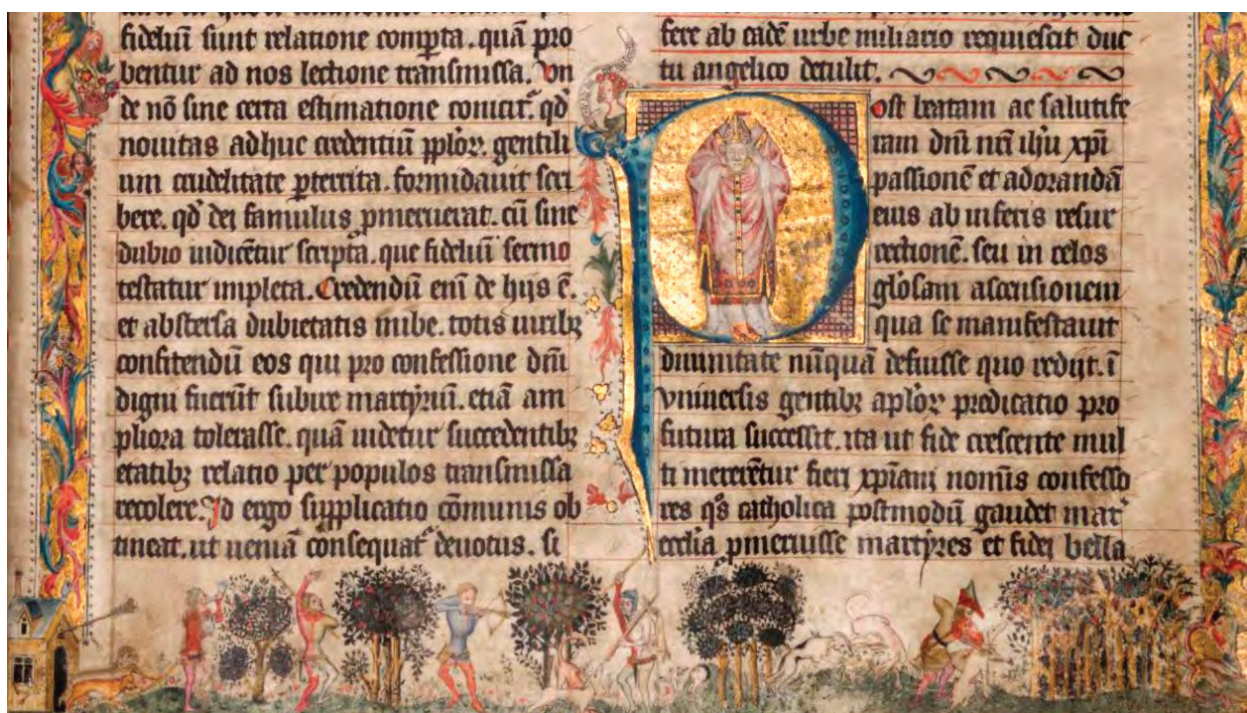 fideliū sunt relatione compta. quā pro
bentur ad nos lectione transmissa. Vn
de nō sine certa estimatione conicit᷑. qd̄
nouitas adhuc credentiū pploꝝ. gentili
um crudelitate ꝑterrita. formidauit scri
bere. qd̄ dei famulus ꝓmeruerat. cū sine
dubio uidicētur scripta. que fideliū sermo
testatur impleta. Credendū enī de hijs ē.
et abstersa dubietatis nube. totis uiribꝫ
confitendū eos qui pro confessione dn̄i
digni fuerūt subire martyriū. etiā am
pliora tolerasse. quā uidetur succedentibꝫ
etatibꝫ relatio per populos transmissa
recolere. Id ergo supplicatio cōmunis ob
tineat. ut ueniā consequat᷑ deuotus. si
fere ab eadē urbe miliario requiescit duc
tu angelico detulit.
Post beatam ac salutife
ram dn̄i nr̄i ih̄u xp̄i
passionē et adorandā
eius ab inferis resur
rectionē. seu in celos
gl̄osam ascensionem
qua se manifestauit
diuinitate nūquā defuisse quo redijt. ī
vniuersis gentibꝫ ap̄loꝝ predicatio pro
futura successit. ita ut fide crescente mul
ti mererētur fieri xp̄iani nomīs confesso
res q̄s catholica postmodū gaudet mat᷑
ecclīa ꝓmeruisse martyres et fidei bella